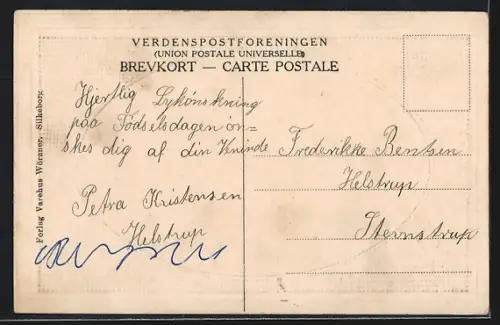 VERDENSPOSTFORENINGEN
(UNION POSTALE UNIVERSELLE)
BREVKORT — CARTE POSTALE
Hjertlig Lykönskning
paa Födselsdagen ön-
skes dig af din Veninde
Petra Kristensen
Helstrup
Frederikke Bentsen
Helstrup
Stevnstrup
Forlag Varehus Wörzner, Silkeborg.